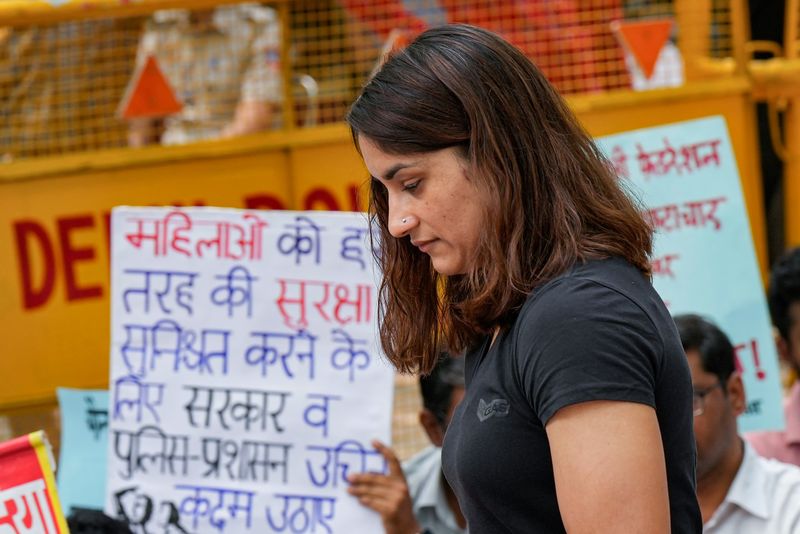 DELHI
महिलाओं को
तरह की सुरक्षा
सुनिश्चित करने के
लिए सरकार व
पुलिस-प्रशासन उचित
कदम उठाए
फेडरेशन